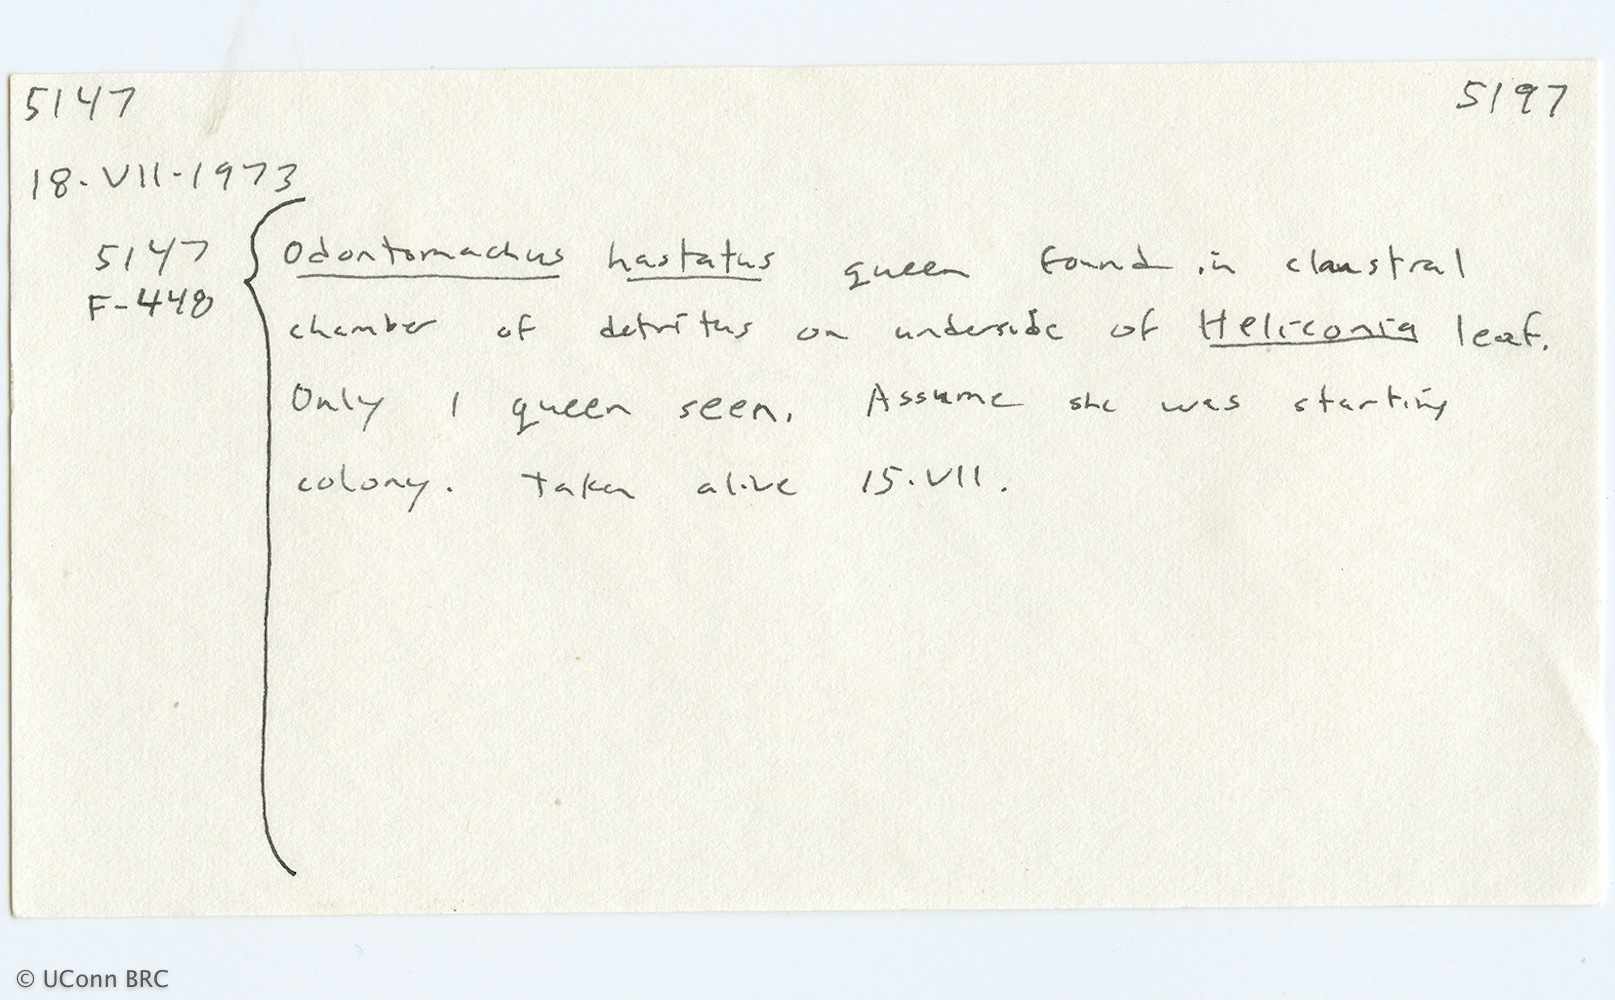 5147 5197
18.VII.1973
5147
F-448
Odontomachus hastatus queen found in claustral
chamber of detritus on underside of Heliconia leaf.
Only 1 queen seen. Assume she was starting
colony. Taken alive 15.VII.
© UConn BRC